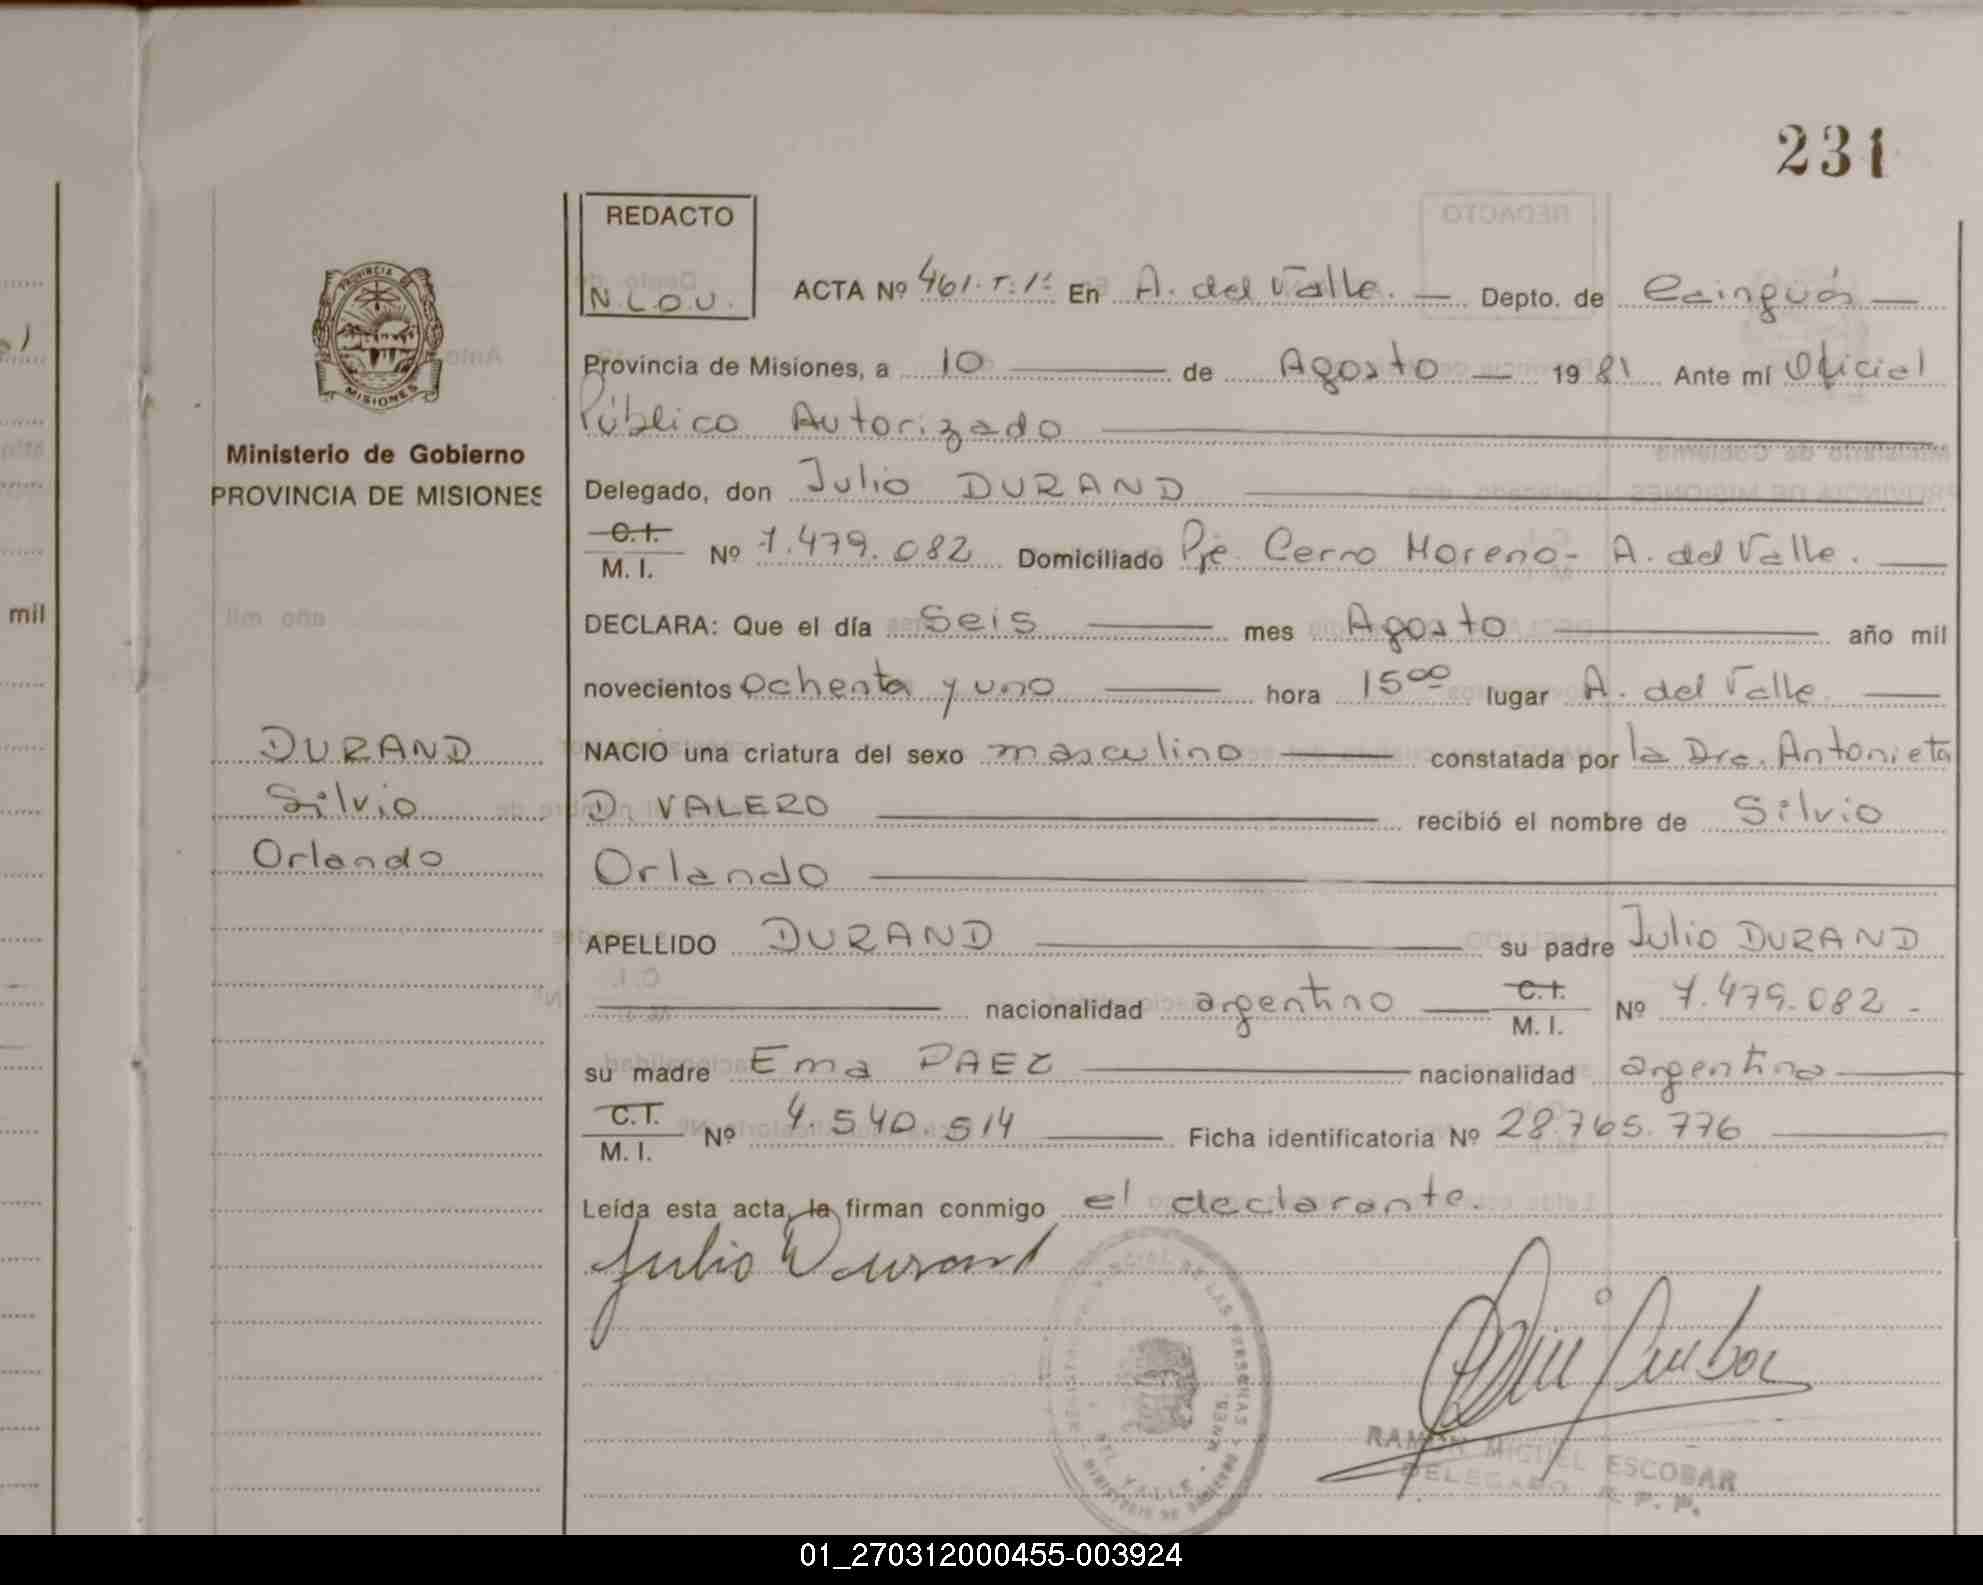 231
REDACTO
N.L.O.U.
ACTA Nº 461.T.1º En A. del Valle. Depto. de Cainguás
Provincia de Misiones, a 10 de Agosto 1981 Ante mí Oficial
Público Autorizado
Delegado, don Julio DURAND
C.I.
M. I. Nº 7.479.082 Domiciliado Pje. Cerro Moreno- A. del Valle.
DECLARA: Que el día Seis mes Agosto año mil
novecientos ochenta y uno hora 15⁰⁰ lugar A. del Valle.
NACIO una criatura del sexo masculino constatada por la Dra. Antonieta
D. VALERO recibió el nombre de Silvio
Orlando
APELLIDO DURAND su padre Julio DURAND
nacionalidad argentino C.I.
M. I. Nº 7.479.082
su madre Ema PAEZ nacionalidad argentina
C.I.
M. I. Nº 4.540.514 Ficha identificatoria Nº 28.765.776
Leída esta acta, la firman conmigo el declarante.
Julio Durand
RAMON MIGUEL ESCOBAR
DELEGADO R. P. P.
PROVINCIA DE
MISIONES
Ministerio de Gobierno
PROVINCIA DE MISIONES
DURAND
Silvio
Orlando
mil
01_270312000455-003924